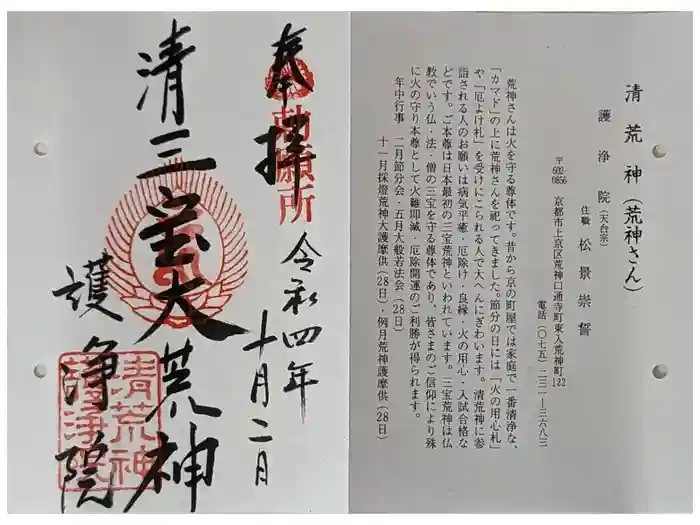 清荒神（荒神さん）
護浄院（天台宗）
住職 松景崇誓
〒602-0856 京都市上京区荒神口通寺町東入荒神町122
電話（〇七五）二三一―三六八三
荒神さんは火を守る尊体です。昔から京の町屋では家庭で一番清浄な、
「カマド」の上に荒神さんを祀ってきました。節分の日には『火の用心札』
や『厄よけ札』を受けにこられる人で大へんにぎわいます。清荒神に参
詣される人のお願いは病気平癒・厄除け・良縁・火の用心・入試合格な
どです。ご本尊は日本最初の三宝荒神といわれています。三宝荒神は仏
教でいう仏・法・僧の三宝を守る尊体であり、皆さまのご信仰により殊
に火の守り本尊として火難即滅・厄除開運のご利勝が得られます。
年中行事 二月節分会・五月大般若法会（28日）
十一月採燈荒神大護摩供（28日）・例月荒神護摩供（28日）
奉拝
勅願所
令和四年
十月二月
清三宝大荒神
護浄院
清荒神
護浄院